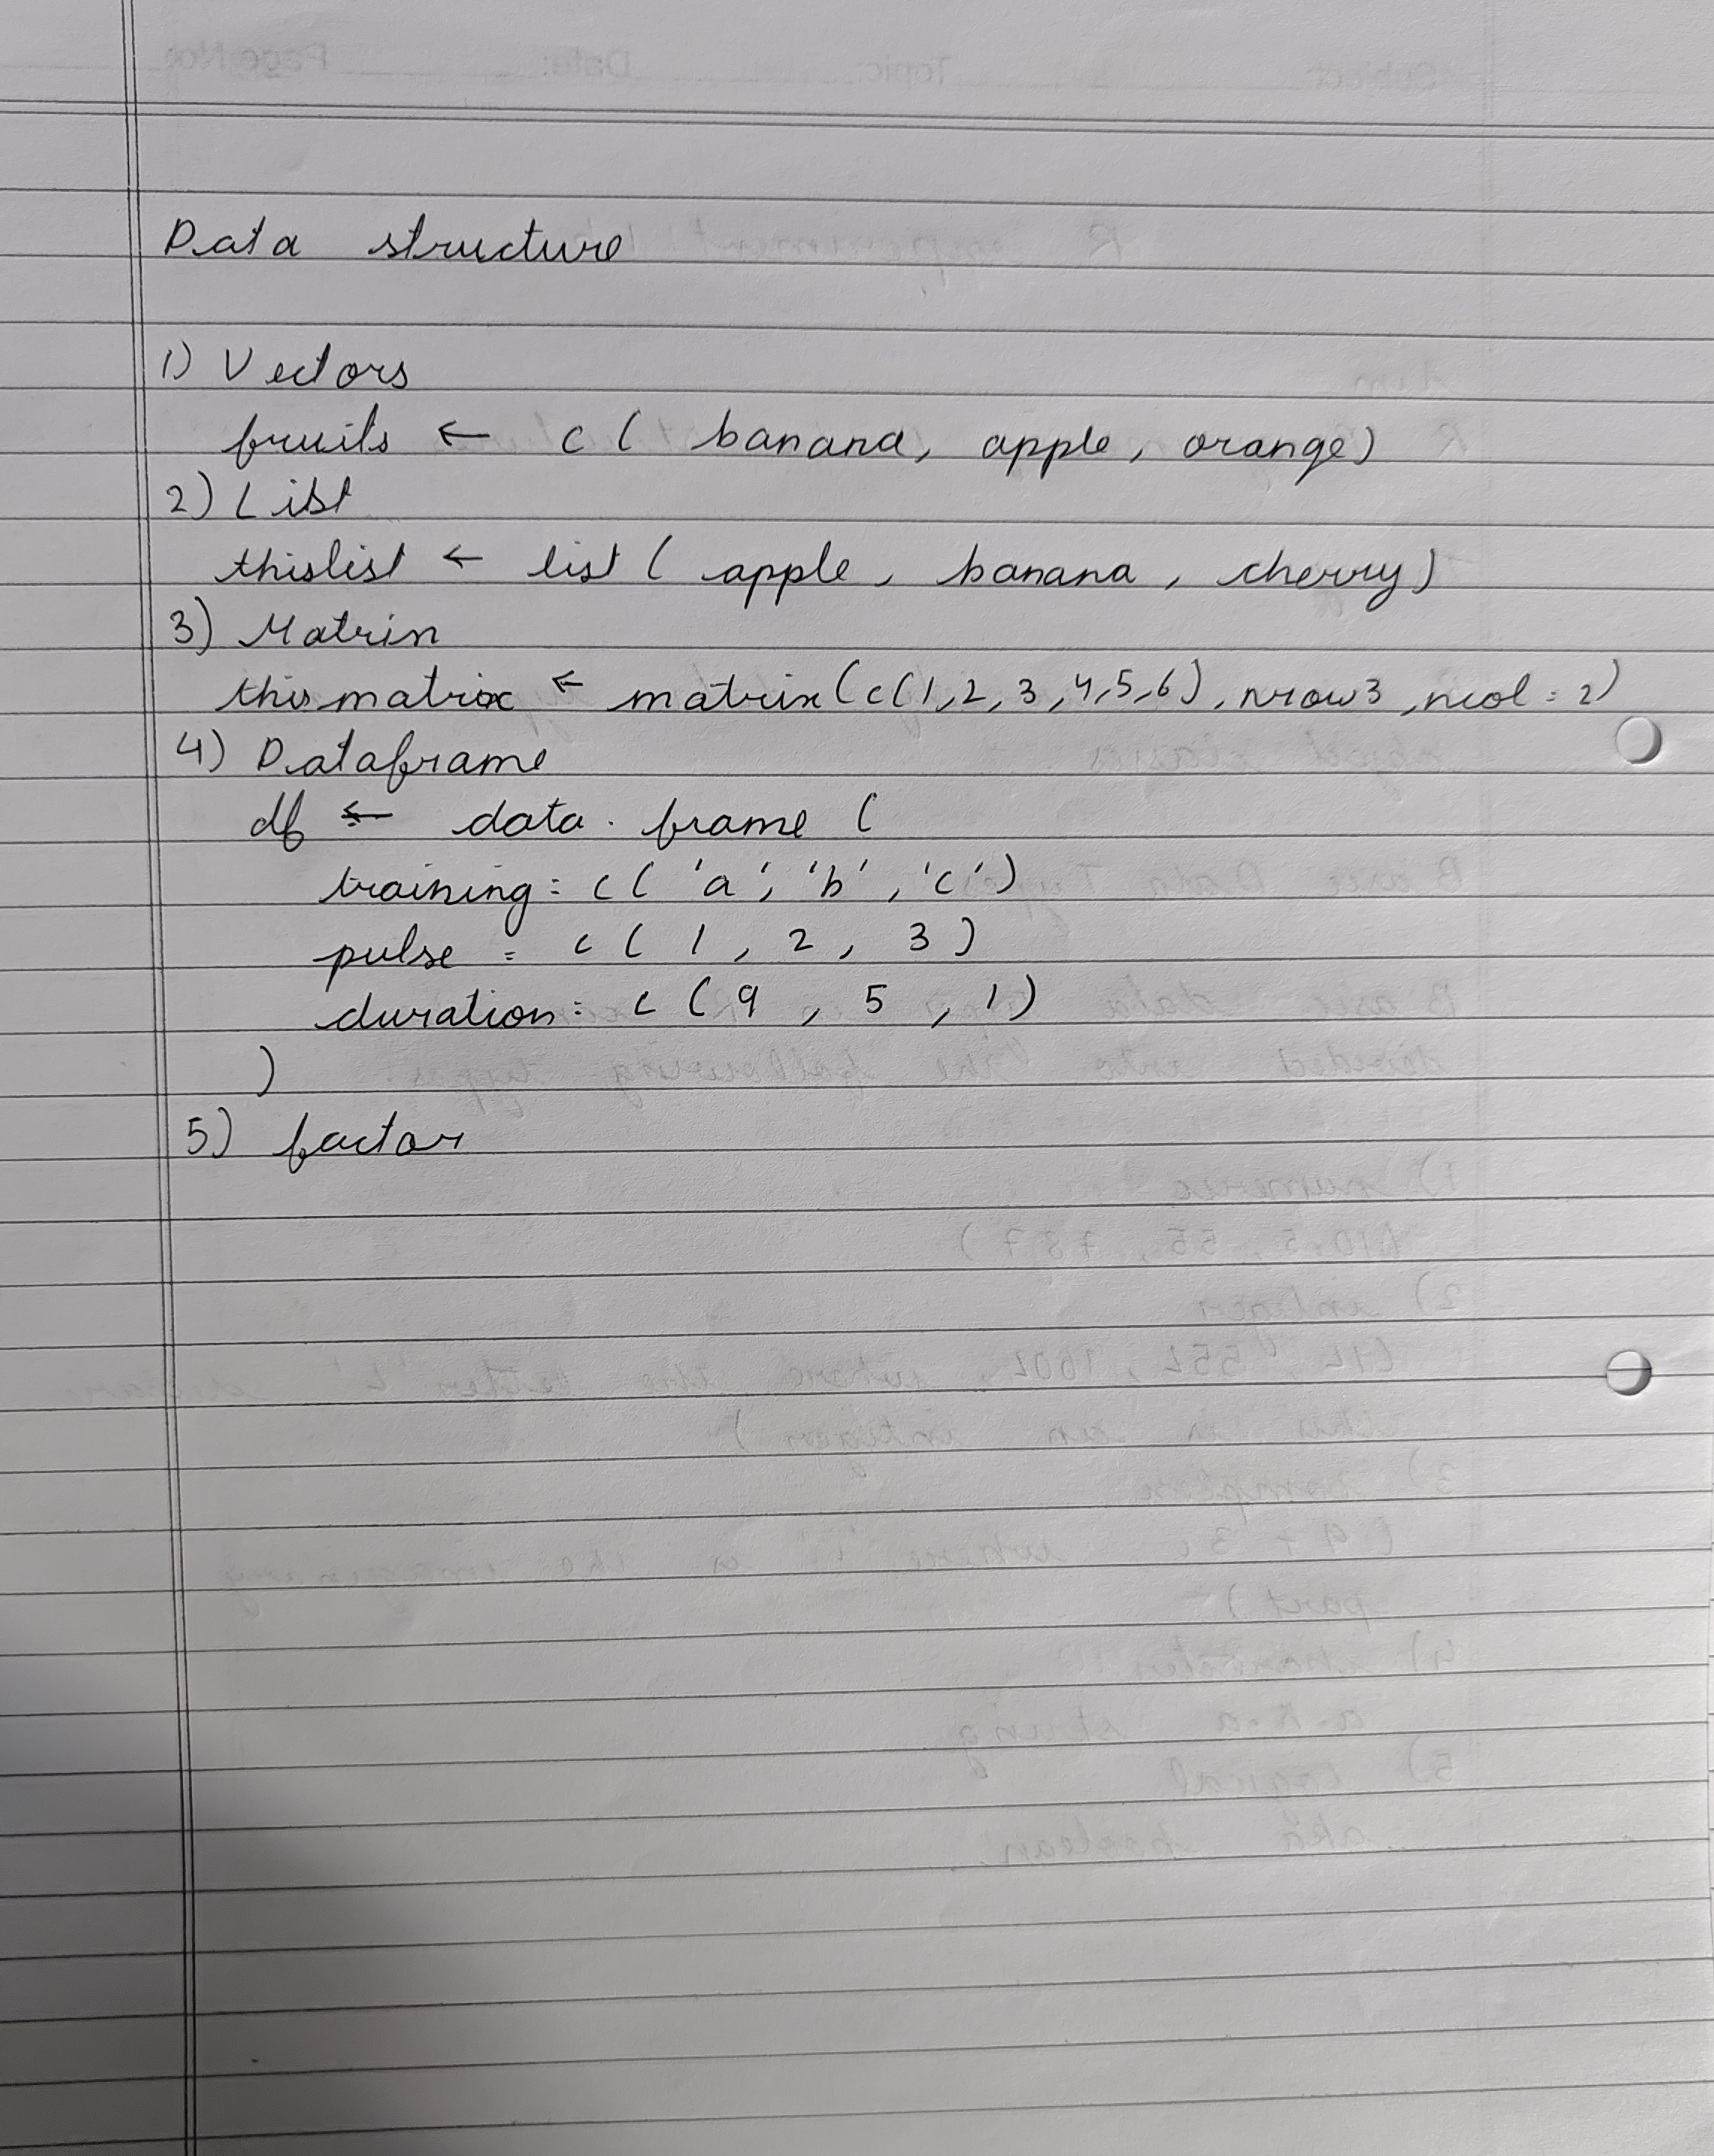 Data structure
1) Vectors
fruits ← c ( banana, apple, orange)
2) List
thislist ← list ( apple, banana, cherry)
3) Matrix
thismatrix ← matrix (c(1,2,3,4,5,6), nrow3, ncol = 2)
4) Dataframe
df ← data.frame (
training = c( 'a', 'b', 'c')
pulse = c( 1, 2, 3)
duration = c (9, 5, 1)
)
5) factor